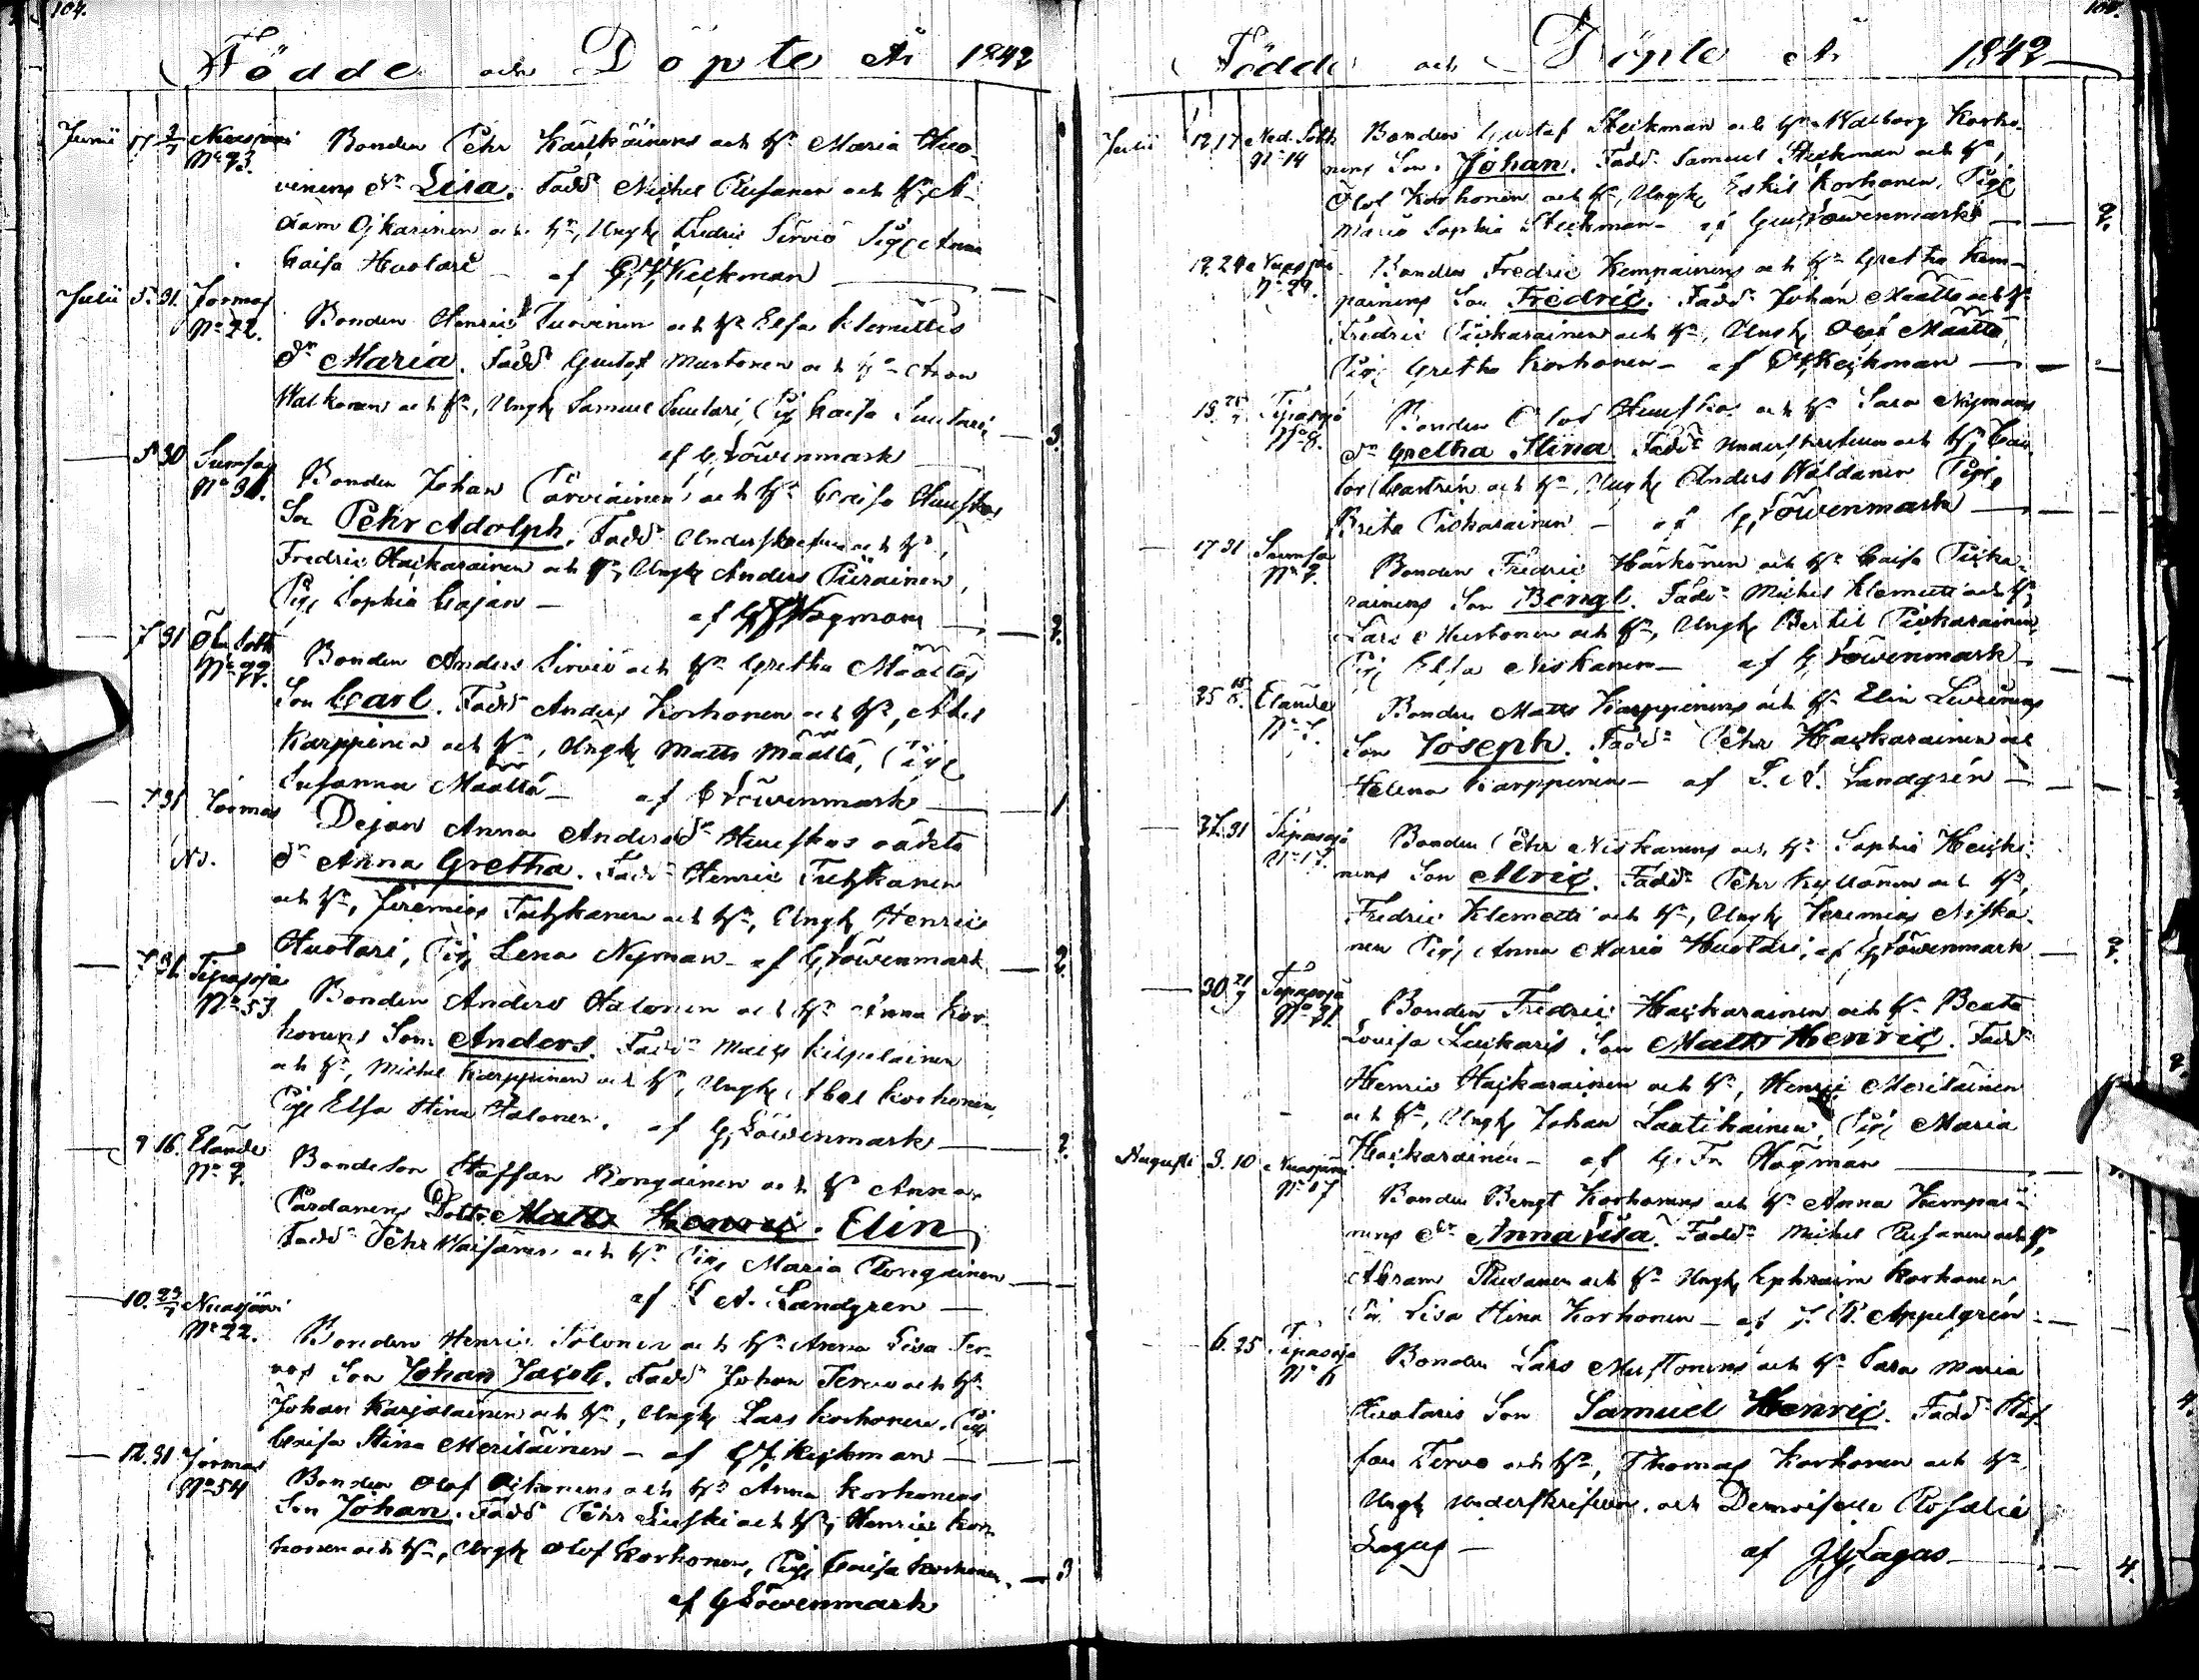 104.
Födde och Döpte År 1842
Junii 17 3/7 Nuasjärvi Bonden Pehr Karjalainens och H:u Maria Huo-
N:o 93. vinens dr Lisa. Fadd: Michel Rusanen och H:u, A-
dam Ojkarinen och H:u, Ungk Fredric Servio Pig: Anna
Caisa Huotari – af G. F. Keckman
Julii 5. 31. Jormas Bonden Henric Tuovinen och H:u Elsa Klemettis
N:o 22. dr Maria. Fadd: Gustaf Mustonen och H:u Aron
Walkonen och H:u, Ungk Samuel Suutari, Pig Kaisa Suutari, 3.
af G. Löwenmark
5 30 Sumsa Bonden Johan Parviainens och H:u Caisa Huuskos
N:o 31. Son Pehr Adolph. Fadd: Underskrefven och H:u,
Fredric Hajkarainen och H:u, Ungk Anders Piirainen,
Pig: Sophia Cajan – af G F Hogman 2.
7 31 Öfv. Sotk Bonden Anders Servio och H:u Gretha Määttäs
N:o 22. Son Carl. Fadd: Anders Korhonen och H:u, Abel
Karppinen och H:u, Ungk Matts Määttä, Pige
Susanna Määttä – af G Löwenmark 1
7 31 Jormas Dejan Anna Anders dr Huuskos oäckta
N:o. dr Anna Gretha. Fadd: Henric Tuhkanen
och H:u, Jeremias Tuhkanen och H:u, Ungk Henric
Huotari, Pig Lena Nyman – af G. Löwenmark 2.
7 31 Tipasoja Bonden Anders Halonen och H:u Anna Kor-
N:o 53 honens Son Anders. Fadd: Matts Kilpelainen
och H:u, Michel Karppinen och H:u, Ungk Abel Korhonen,
Pige Elsa Stina Halonen. af G, Löwenmark 2.
9 16. Etäude Bondeson Staffan Rongainen och H:u Anna
N:o 2. Pardanens Dotter Matts Henric. Elin
Fadd: Pehr Waisanen och H:u Pig Maria Rongainen
af L A. Landgren
10. 23/7 Nuasjärvi Bonden Henric Tolonen och H:u Anna Lisa Ter-
N:o 22. vos Son Johan Jacob. Fadd: Johan Tervo och H:u
Johan Karjalainen och H:u, Ungk Lars Korhonen, Pig
Caisa Stina Meriläinen – af G F. Keckman
12. 31 Jormas Bonden Olof Oikonens och H:u Anna Korhonens
N:o 54 Son Johan. Fadd: Pehr och H:u, Henric Kor-
honen och H:u, Ungk Olof Korhonen, Pig: Caisa Korhonen. 3
af G Löwenmark
105.
Födde och Döpte År 1842
Julii 12 17 Ned. Sotk Bonden Gustaf Steckman och H:u Walborg Korho-
N:o 14 nens Son. Johan. Fadd: Samuel Steckman och H:u,
Olof Korhonen och H:u, Ungk Eskil Korhonen, Pige
Maria Sophia Steckman – af G. Löwenmark 2.
12. 24 Nuasjärvi Bonden Fredric Kempainens och H:u Gretha Kem-
N:o 29. painens Son Fredric. Fadd: Johan Määttä och H:u
Fredric Piskarainen och H:u, Ungk Olof Määttä,
Pig: Gretha Korhonen – af G F, Keckman
15 Tipasoja Bonden Olof Huuskos och H:u Sara Nymans
N:o 8. dr Gretha Stina. Fadd: Underskrefven och H:u, Car-
Castrén och H:u, Ungk Anders Waldanen Pige
Brita Piskarainen – af G, Löwenmark
17 31 Sumsa Bonden Fredric Härkönen och H:u Caisa Piska-
N:o 2. rainens Son Bengt. Fadd: Michel Klemetti och H:u,
Lars Mustonen och H:u, Ungk Bertil Piskarainen,
Pig: Elsa Niskanen – af G Löwenmark
25 Etäude Bonden Matts Karppinens och H:u Elin Leveinens
N:o 7. Son Joseph. Fadd: Pehr Hajkarainen och
Helena Karppinen – af L. A. Landgrén
27. 31 Tipasoja Bonden Pehr Niskanens och H:u Sophia Heiski-
N:o 17. nens Son Alric. Fadd: Pehr Kyllönen och H:u,
Fredric Klemetti och H:u, Ungk Jeremias Niska-
nen Pig: Anna Maria Huotari, af G Löwenmark 2.
30 31/7 Tipasoja Bonden Fredric Hajkarainen och H:u Beata
N:o 21. Lovisa Laukaris Son Matts Henric. Fadd:
Henric Hajkarainen och H:u, Henric Meriläinen
och H:u, Ungk Johan Laatikainen, Pig: Maria
Hajkarainen – af G. Fr Högman
Augusti 3. 10 Nuasjärvi Bonden Bengt Korhonens och H:u Anna Kempai-
N:o 17 nens dr Anna Lisa. Fadd: Michel Rusanen och H:u,
Abram Rusanen och H:u Ungk Ephraim Korhonen
Pig Lisa Stina Korhonen – af J. R. Appelgrén
6. 25 Tipasoja Bonden Lars Mustonens och H:u Sara Maria
N:o 6 Huotaris Son Samuel Henric. Fadd: Staf-
fan Tervo och H:u, Thomas Korhonen och H:u
Ungk Underskrifven. och Demoiselle Rosalie
Lagus – af J G Lagus 4.